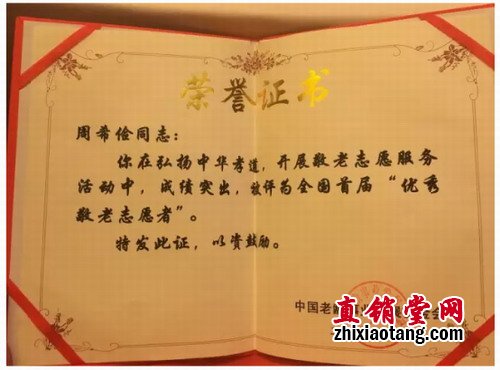 荣誉证书
周希俭同志：
你在弘扬中华孝道，开展敬老志愿服务
活动中，成绩突出，被评为全国首届“优秀
敬老志愿者”。
特发此证，以资鼓励。
中国老龄
直销堂网
zhixiaotang.com